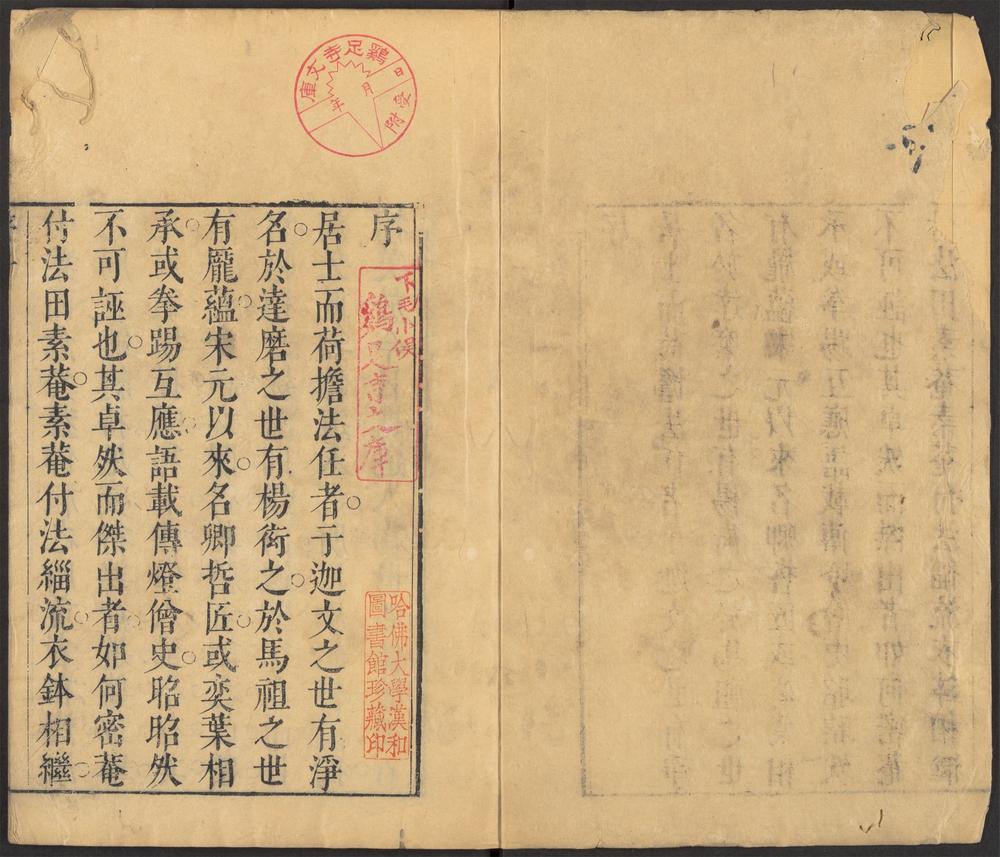 序
居士而荷擔法任者于迦文之世有淨
名於達磨之世有楊衒之於馬祖之世
有龐蘊宋元以來名卿哲匠或奕葉相
承或拳踢互應語載傳燈僧史昭昭然
不可誣也其卓然而傑出者如何密菴
付法田素菴素菴付法緇流衣鉢相繼
鷄足寺文庫
年月日
受附
下毛小俣
鷄足寺文庫
哈佛大學漢和
圖書館珍藏印